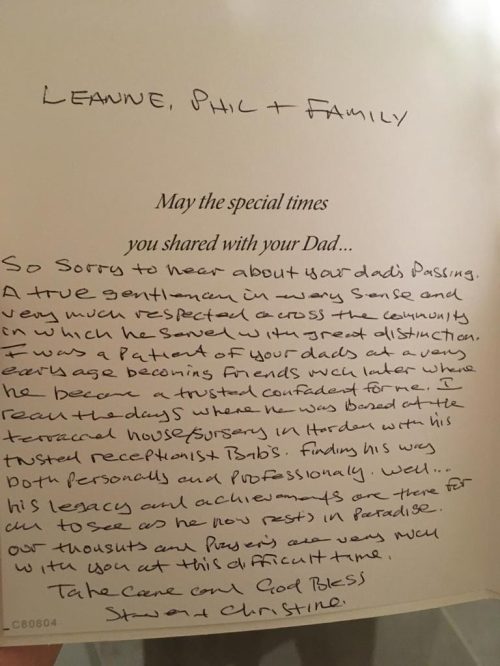 LEANNE, PHIL + FAMILY
May the special times
you shared with your Dad...
So Sorry to hear about your dad's Passing.
A true gentleman in every Sense and
very much respected across the community
in which he Served with great distinction.
I was a Patient of your dads at a very
early age becoming friends much later where
he became a trusted confadent for me. I
recall the days where he was Based at the
terraced house/surgery in Harden with his
trusted receptionist Bab's. finding his way
both Personally and Professionaly. well...
his legacy and achievements are there for
all to see as he now rests in Paradise.
our thoughts and Prayers are very much
with you at this difficult time.
Take care and God Bless
+ Christine.
C80804